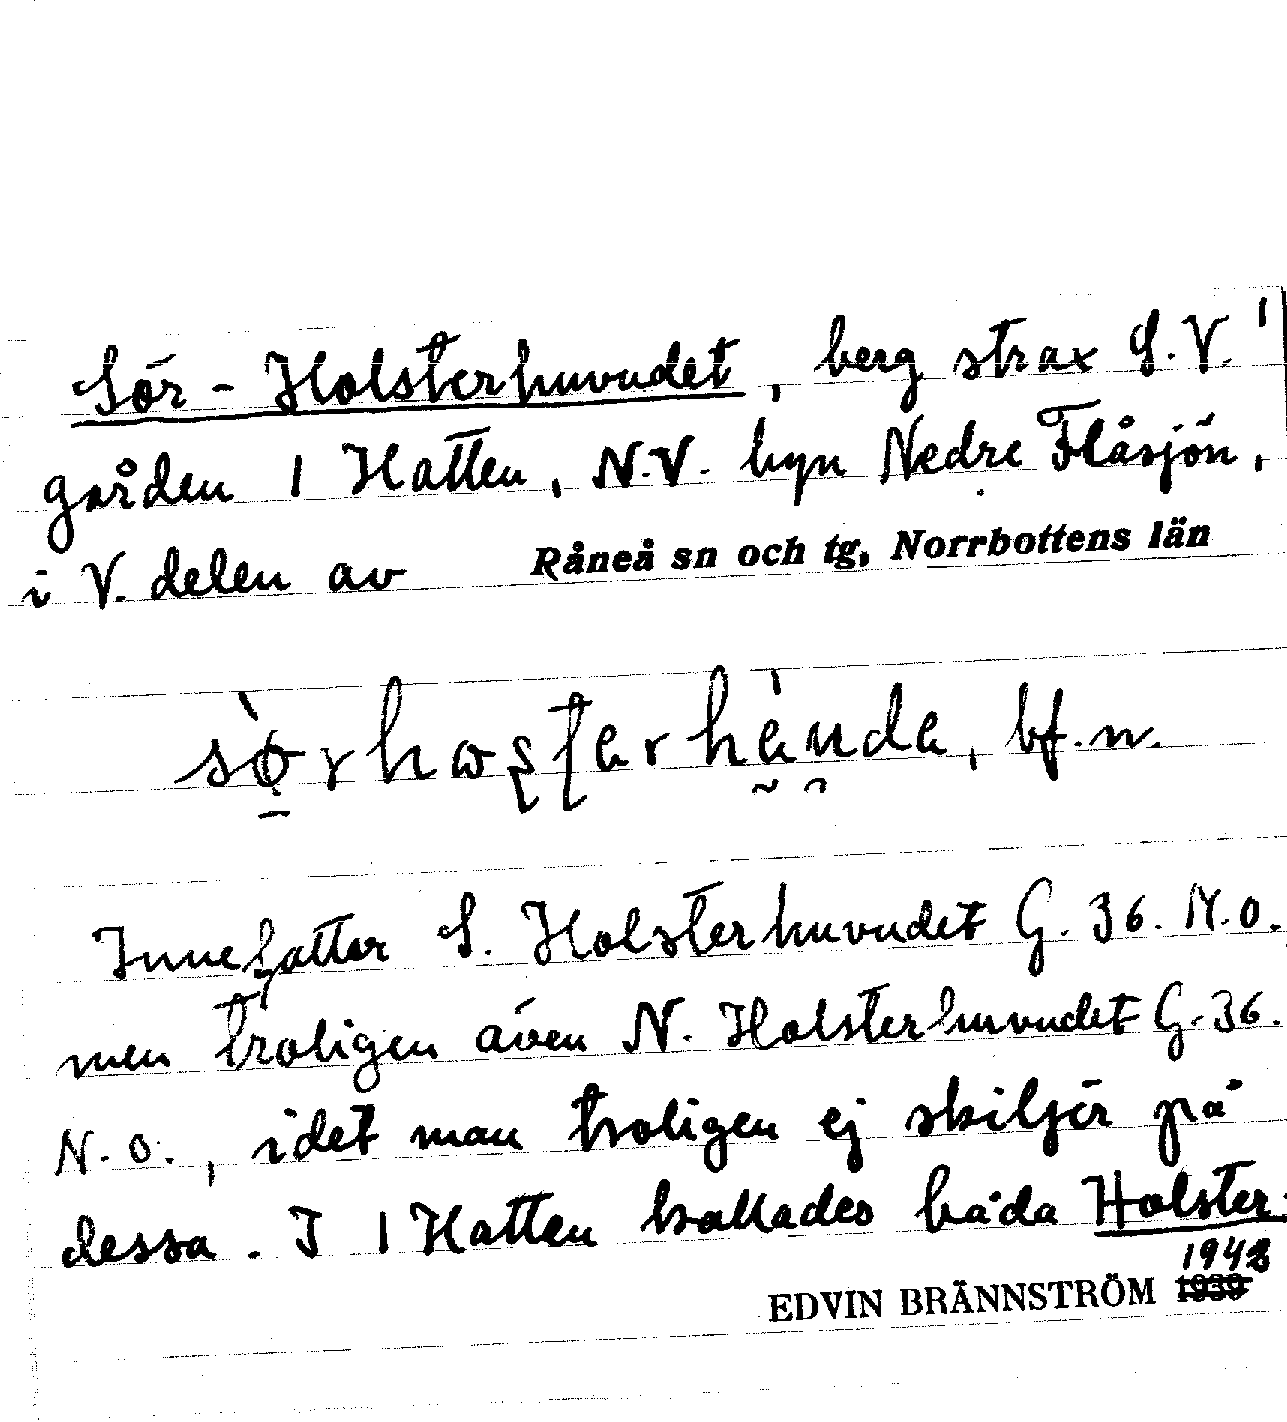 Sör-Holsterhuvudet, berg strax S.V. 1
gården 1 Hatten, N.V. byn Nedre Flåsjön,
i V. delen av Råneå sn och tg, Norrbottens län
bf. n.
Innefattar S. Holsterhuvudet G. 36. N.O.
men troligen även N. Holsterhuvudet G. 36.
N.O., idet man troligen ej skiljer på
dessa. I 1 Hatten kallades båda Holster-
1942
EDVIN BRÄNNSTRÖM 1939